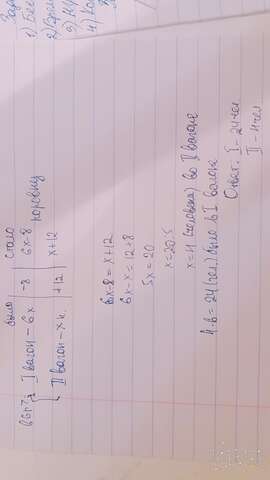 Зада
1) Бес
4) Ко
было | стало
I вагон - 6x | -8 | 6x-8
поровну
II вагон - x | +12 | x+12
6x-8 = x+12
6x-x = 12+8
5x = 20
x = 20:5
x=4 (человека) во II вагоне
4·6=24 (чел.) было в I вагоне
Ответ: I - 24 чел
II - 4 чел